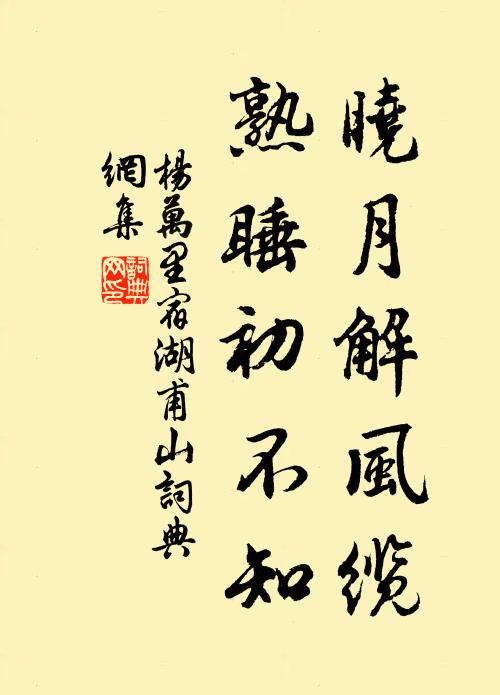 曉月解風纜
熟睡初不知
楊萬里宿湖甫山詞典
網集
詞典網印